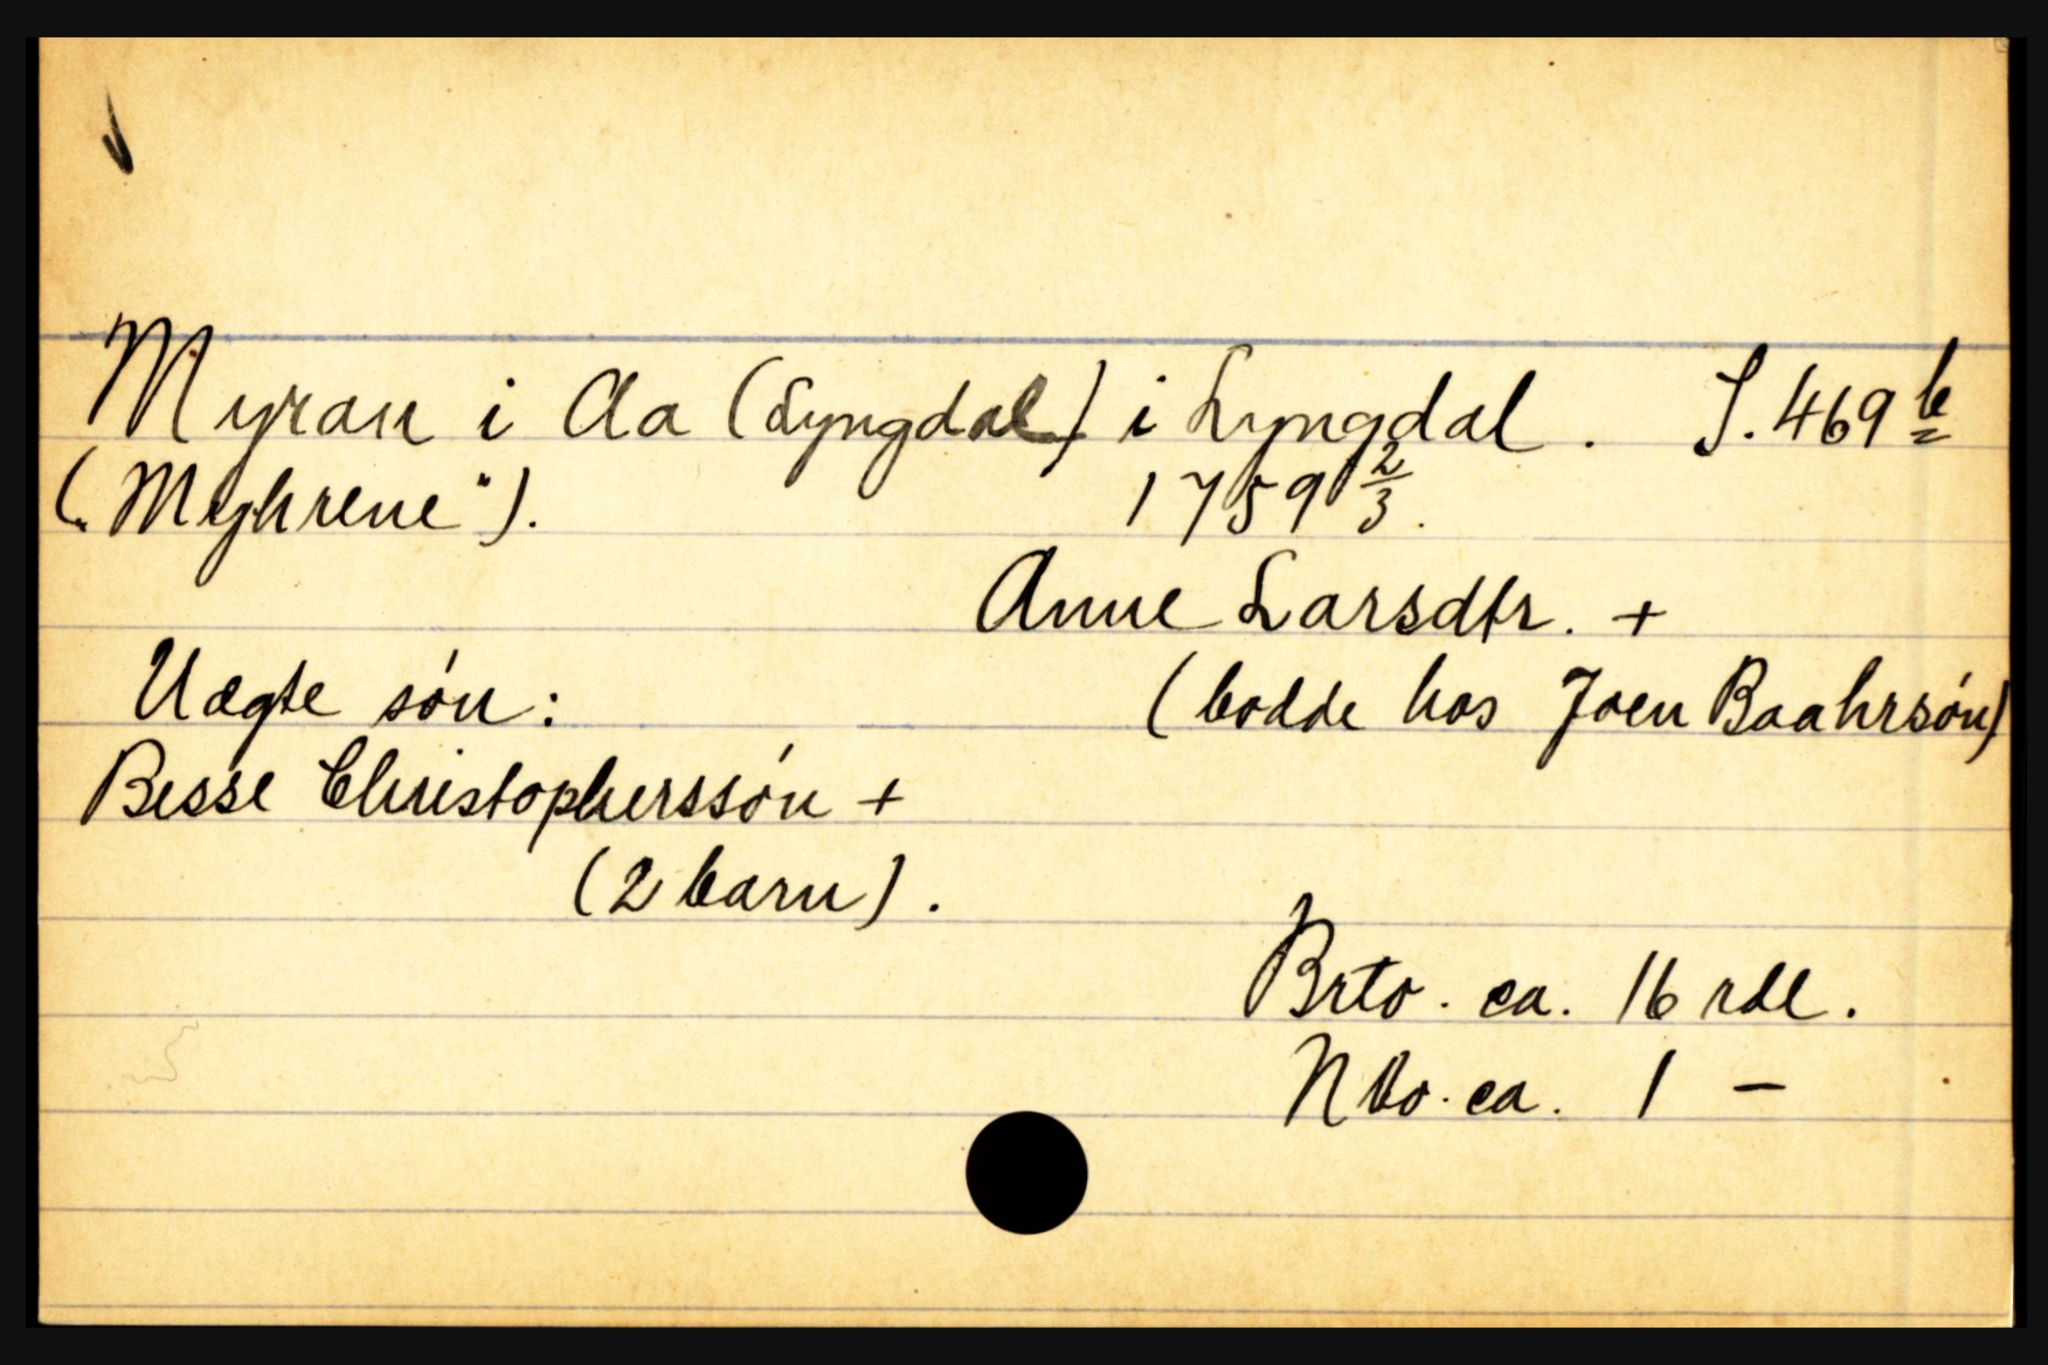 Myran i Aa (Lyngdal) i Lyngdal. S. 469 b
("Myhrene"). 1759 2/3.
Anne Larsdtr. +
(bodde hos Joen Baahrsón)
Uægte són:
Besse Christopherssón +
(2 barn).
Brto. ca. 16 rdl.
Nto. ca. 1 —